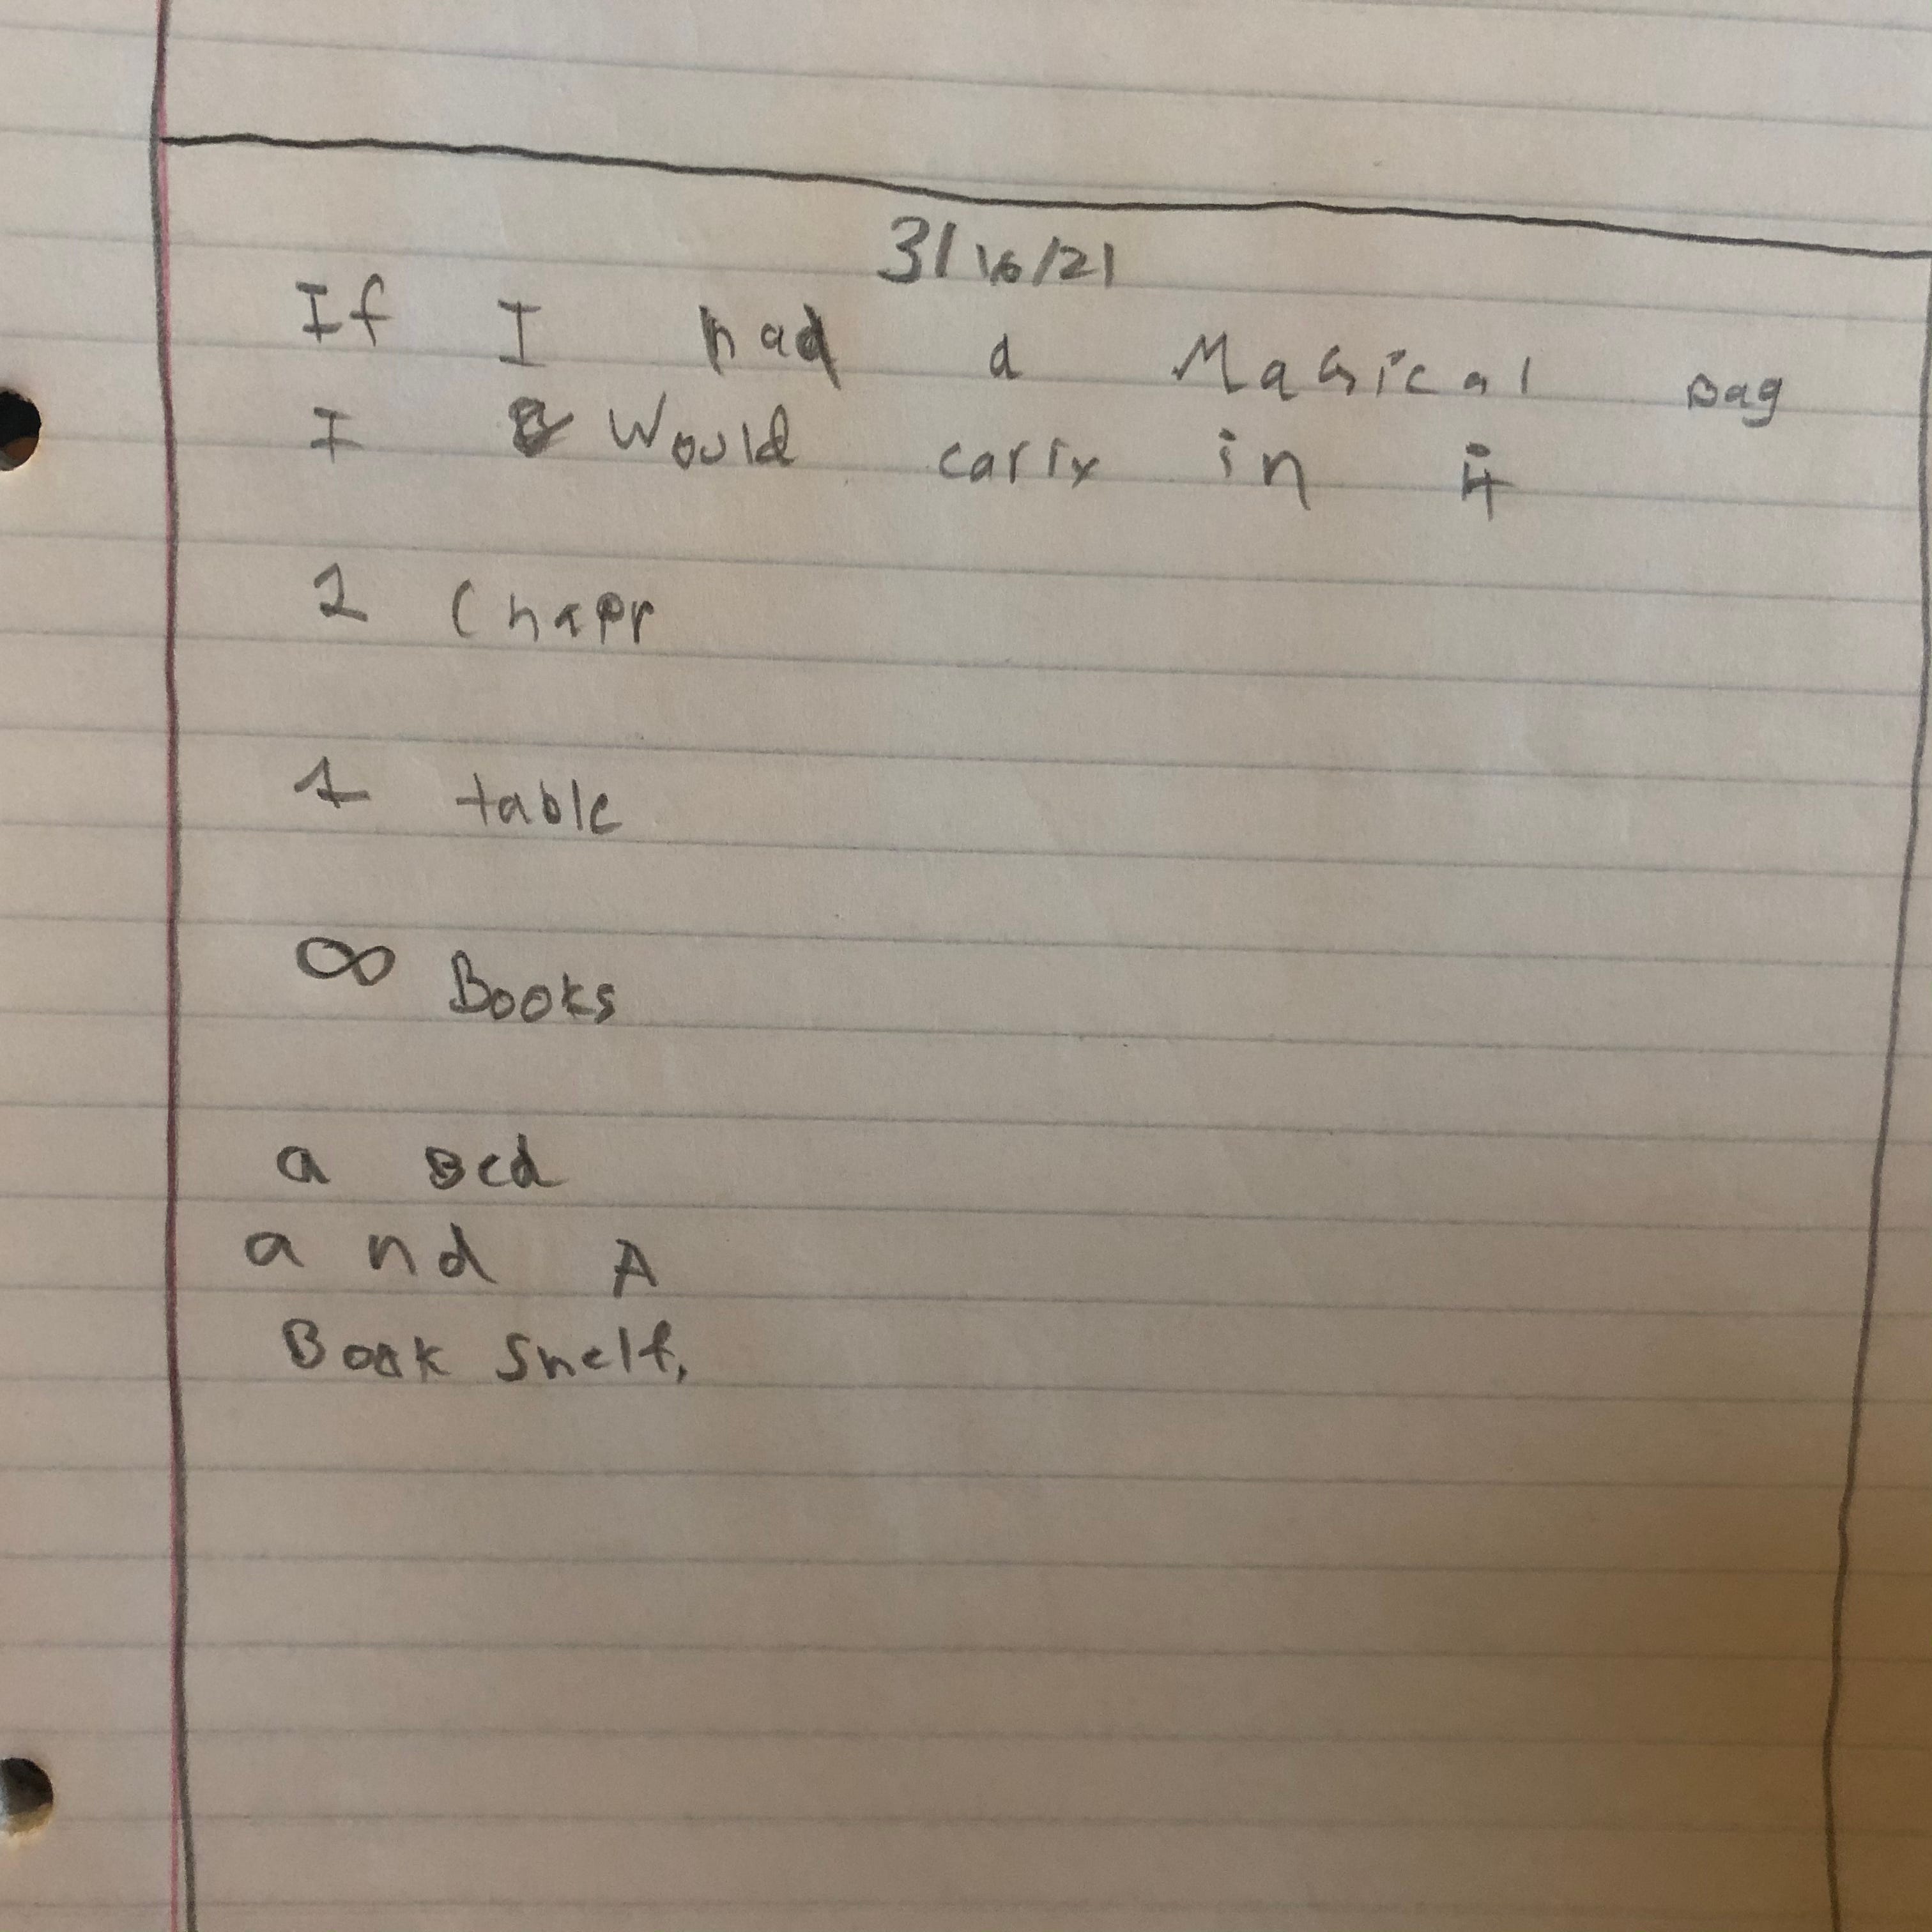 3/16/21
If I had a Magical Bag
I Would carry in it
1 Chaer
1 table
∞ Books
a Bed
and A
Book Shelf.